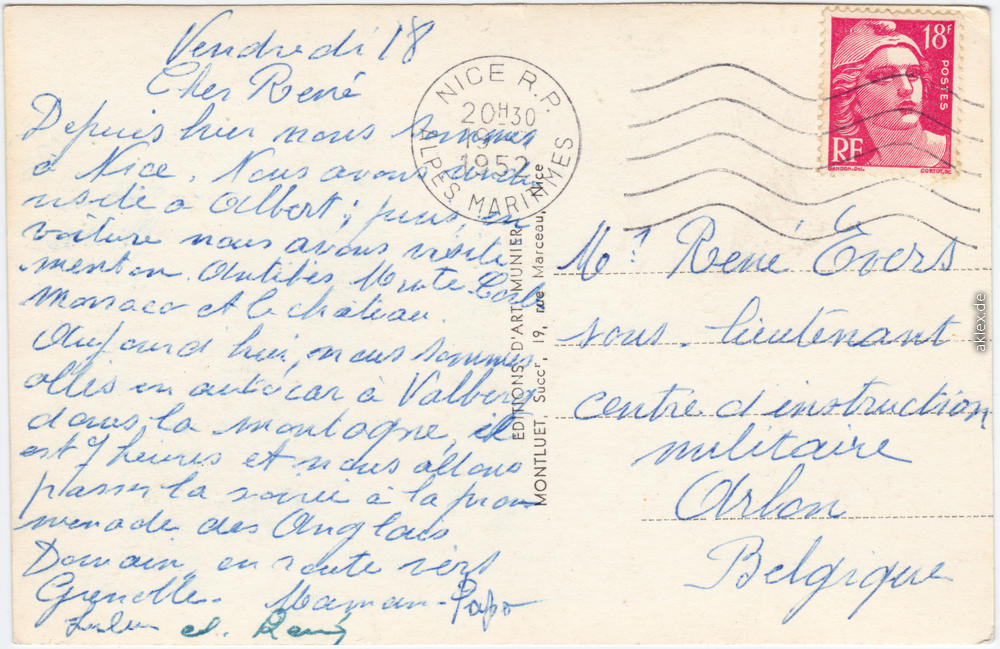 Vendredi 18
Cher René
Depuis hier nous sommes
à Nice. Nous avons rendu
visite à Albert; puis, en
voiture nous avons visité
menton. Antibes Monte Carlo
monaco et le château.
Aujourd hui, nous sommes
allés en autocar à Valberg
dans la montagne, il
est 7 heures et nous allons
passer la soirée à la pro
menade des Anglais
Demain en route vers
Grenoble. Maman - Papa
et
NICE R.P.
20H30
19
1952
ALPES MARITIMES
18F
POSTES
RF
GANDON. DEL.
CORTOT. SC
EDITIONS D'ART MUNIER
MONTLUET Succr, 19, rue Marceau, Nice
Mr. René Evers
sous. lieutenant
centre d instruction
militaire
Arlon
Belgique
aklex.de